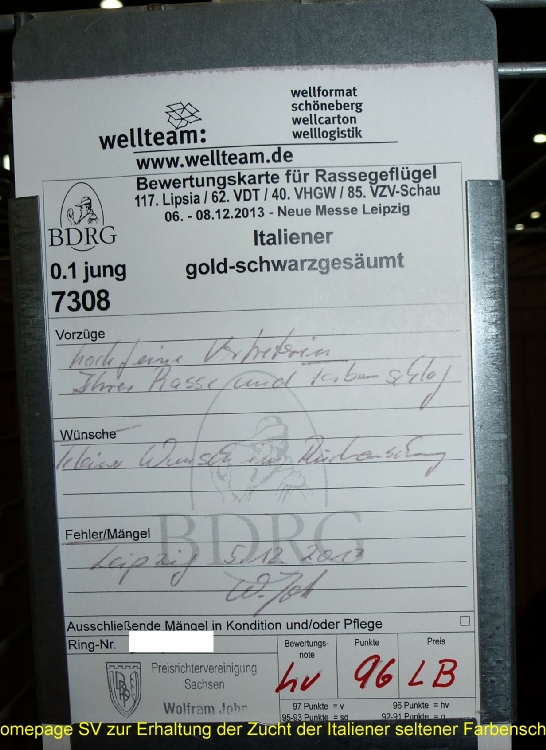 wellteam:
wellformat
schöneberg
wellcarton
welllogistik
www.wellteam.de
Bewertungskarte für Rassegeflügel
117. Lipsia / 62. VDT / 40. VHGW / 85. VZV-Schau
06. - 08.12.2013 - Neue Messe Leipzig
BDRG
Italiener
0.1 jung
gold-schwarzgesäumt
7308
Vorzüge
hochfeine Vertreterin
Ihrer Rasse und Farbenschlag
Wünsche
kleiner Wunsch in
Fehler/Mängel
BDRG
Leipzig 5.12.2013
W. Joh
Ausschließende Mängel in Kondition und/oder Pflege
Ring-Nr.
Preisrichtervereinigung
Sachsen
Wolfram John
Bewertungs-
note
Punkte
Preis
hv 96 LB
97 Punkte = v 96 Punkte = hv
95-93 Punkte = sg 92-91 Punkte = g
omepage SV zur Erhaltung der Zucht der Italiener seltener Farbensch